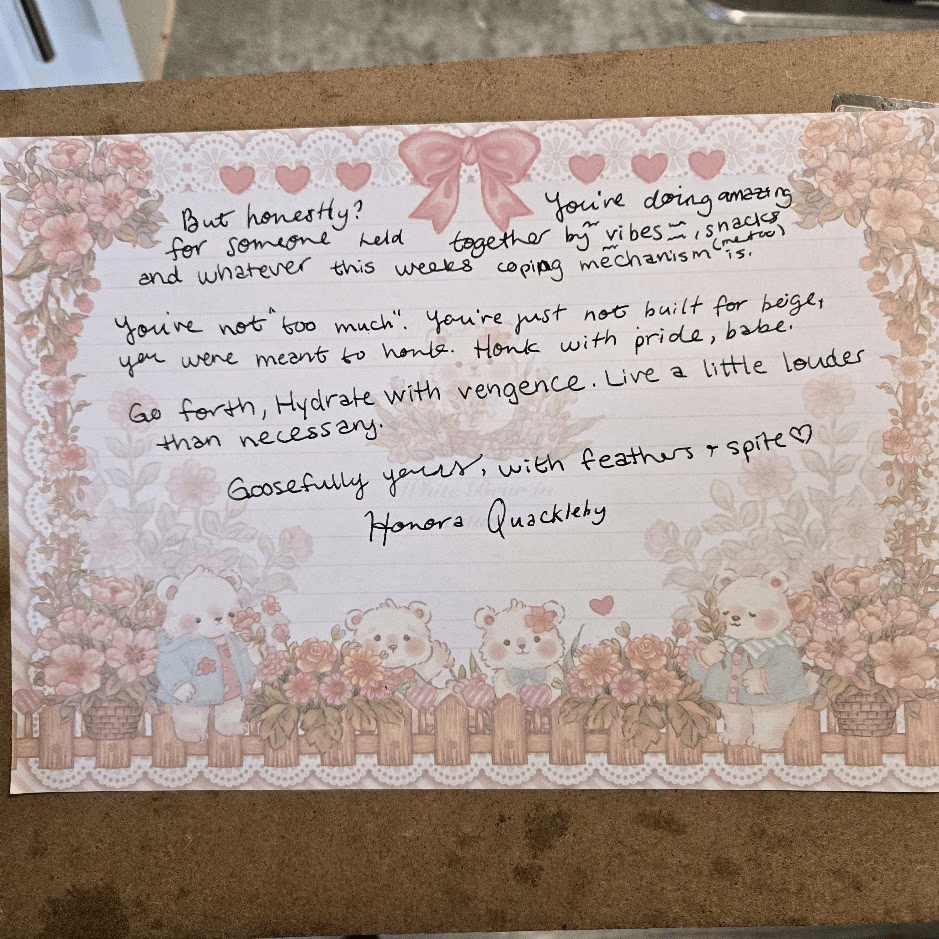 But honestly? You're doing amazing
for someone held together by ~ vibes ~, snacks
and whatever this weeks coping mechanism (metoo) is.
You've not "too much". You're just not built for beige,
you were meant to honk. Honk with pride, babe.
Go forth, Hydrate with vengence. Live a little louder
than necessary.
Goosefully yours, with feathers + spite♡
Honora Quackleby